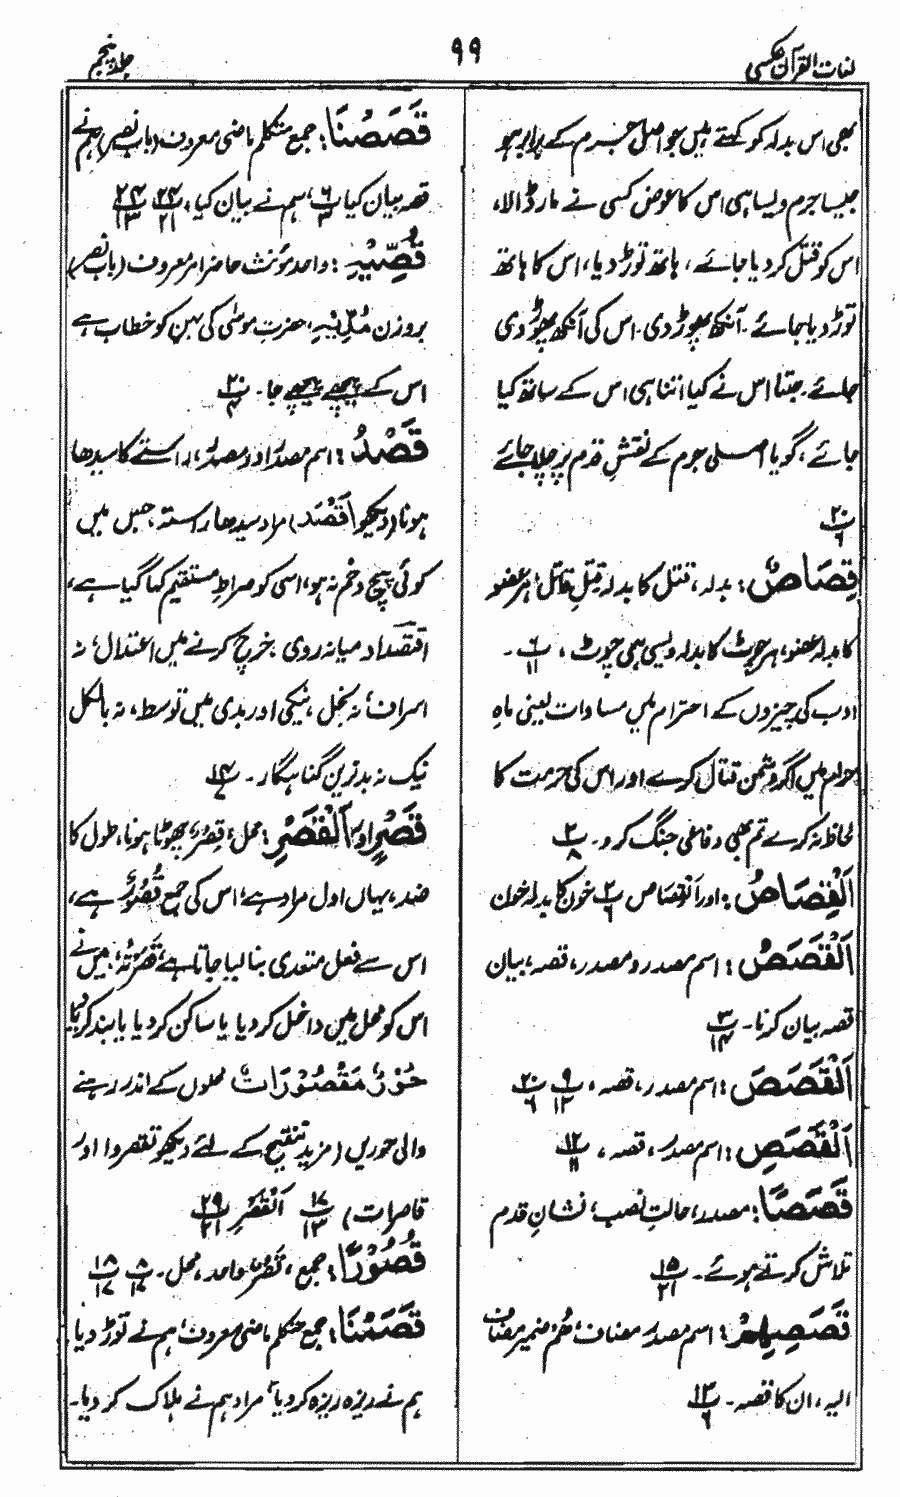 لغات القرآن عکسی
۹۹
جلد پنجم
بھی اس بدلہ کو کہتے ہیں جو اصل جرم کے برابر ہو
جیسا جرم ویسا ہی اس کا عوض کسی نے مار ڈالا،
اس کو قتل کر دیا جائے، ہاتھ توڑ دیا، اس کا ہاتھ
توڑ دیا جائے۔ آنکھ پھوڑ دی۔ اس کی آنکھ پھوڑ دی
جائے۔ جتنا اس نے کیا اُتنا ہی اس کے ساتھ کیا
جائے، گویا اصلی جرم کے نقشِ قدم پر چلا جائے
۲۰/۶
قِصَاصٌ: بدلہ، قتل کا بدلہ قتلِ قاتل، ہر عضو
کا بدلہ عضو، ہر چوٹ کا بدلہ ویسی ہی چوٹ، ۶/۱۱۔
ادب کی چیزوں کے احترام میں مساوات یعنی ماہِ
حرام میں اگر دشمن قتال کرے اور اس کی حرمت کا
لحاظ نہ کرے تم بھی دفاعی جنگ کرو۔ ۲/۸
اَلْقِصَاصُ: اور اَلْقِصَاصِ ۲/۶ خون کا بدلہ خون
اَلْقَصَصُ: اسم مصدر و مصدر، قصہ، بیان
قصہ بیان کرنا۔ ۳/۱۴
اَلْقَصَصَ: اسم مصدر، قصہ، ۹/۱۲ ۲۰/۶
اَلْقَصَصِ: اسم مصدر، قصہ، ۱۲/۱۱
قَصَصًا: مصدر، حالتِ نصب، نشانِ قدم
تلاش کرتے ہوئے۔ ۱۵/۲۱
قَصَصِهِمْ: اسم مصدر مضاف، هُمْ ضمیر مضاف
الیہ، ان کا قصہ۔ ۱۳/۶
قَصَصْنَا: جمع متکلم ماضی معروف (باب نصر) ہم نے
قصہ بیان کیا ۶/۳، ہم نے بیان کیا، ۲۴/۲۱ ۲۴/۱۳
قُصِّيْهِ: واحد مؤنث حاضر امر معروف (باب نصر)
بروزن مُدِّيْهِ، حضرت موسیٰ کی بہن کو خطاب ہے
اس کے پیچھے پیچھے جا۔ ۲۰/۴
قَصْدُ: اسم مصدر اور مصدر، راستے کا سیدھا
ہونا (دیکھو اَقْصَد) مراد سیدھا راستہ، جس میں
کوئی پیچ و خم نہ ہو، اسی کو صراطِ مستقیم کہا گیا ہے،
اقتصاد میانہ روی۔ خرچ کرنے میں اعتدال، نہ
اسراف، نہ بخل، نیکی اور بدی میں توسط، نہ بالکل
نیک نہ بدترین گناہگار۔
قَصْرٍ اور اَلْقَصْرِ: محل، قِصَرٌ، چھوٹا ہونا، طول کا
ضد، یہاں اول مراد ہے، اس کی جمع قُصُوْرٌ ہے،
اس سے فعل متعدی بنا لیا جاتا ہے، قَصَرْتُهٗ، میں نے
اس کو محل میں داخل کر دیا یا ساکن کر دیا یا بند کر دیا
حُوْرٌ مَّقْصُوْرَاتٌ محلوں کے اندر رہنے
والی حوریں (مزید تنقیح کے لئے دیکھو تقصروا اور
قاصرات) ۱۷/۱۳ اَلْقَصْرِ ۲۹/۲۱
قُصُوْرًا: جمع، قَصْرٌ، واحد، محل۔ ۸/۱۷ ۱۸/۱۷
قَصَمْنَا: جمع متکلم ماضی معروف، ہم نے توڑ دیا
ہم نے ریزہ ریزہ کر دیا، مراد ہم نے ہلاک کر دیا۔